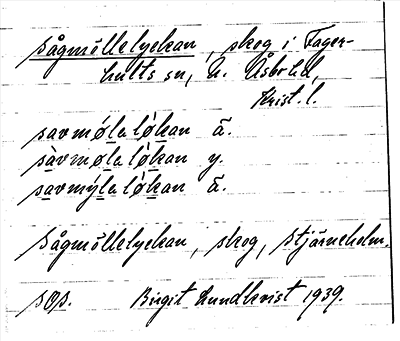 Sågmöllelyckan, skog i Fager-
hults sn, N. Åsbo hd,
Krist. l.
savmøləløkan ä.
sàvmøləlòkan y.
savmýləløkan ä.
Sågmöllelyckan, skog, Stjärneholm.
sos. Birgit Lundkvist 1939.